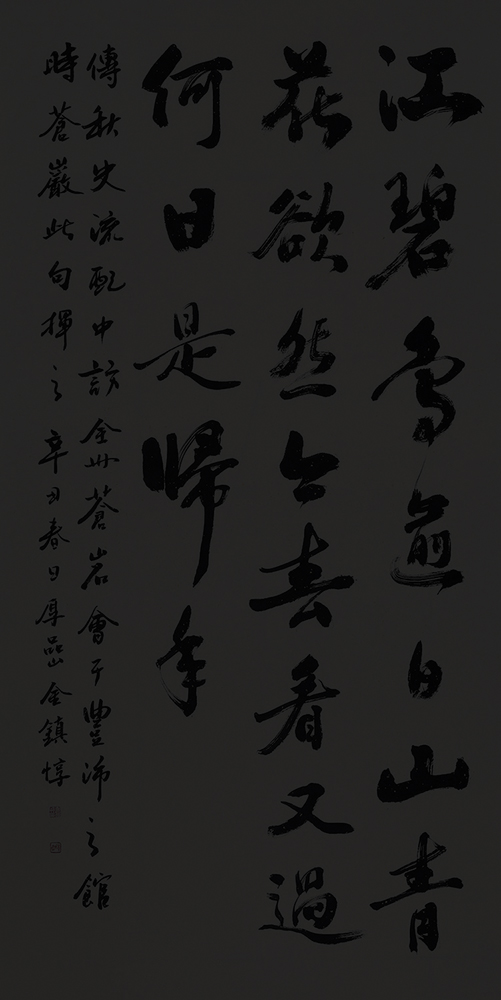 江碧鳥逾白山青
花欲然今春看又過
何日是歸年
傳秋史流配中訪全州蒼岩會于豐沛之館
時蒼巖此句揮之 辛丑春日 金鎮惇